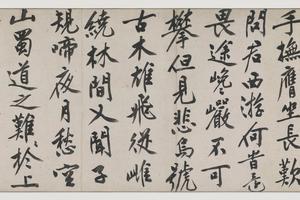 手撫膺坐長歎
問君西游何時還
畏途巉巖不可
攀但見悲鳥號
古木雄飛從雌
繞林間又聞子
規啼夜月愁空
山蜀道之難於上